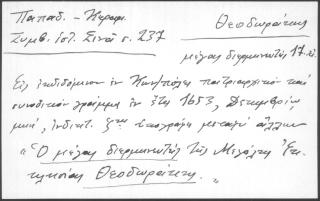 Παπαδ. - Κεραμ.
Θεοδωράκης
Συμβ. Ἱστ. Σινᾶ σ. 237
μέγας διερμηνευτής, 17. αἰ.
Εἰς ἐκδιδόμενον ἐν Κων/πόλει πατριαρχικόν καί
συνοδικόν γράμμα ἐν ἔτει 1653, Δεκεμβρίῳ
μηνί, ἰνδικτ. ζῃ ὑπογράφει μεταξύ ἄλλων
"Ὁ μέγας διερμηνευτής τῆς Μεγάλης Ἐκ-
κλησίας Θεοδωράκης."